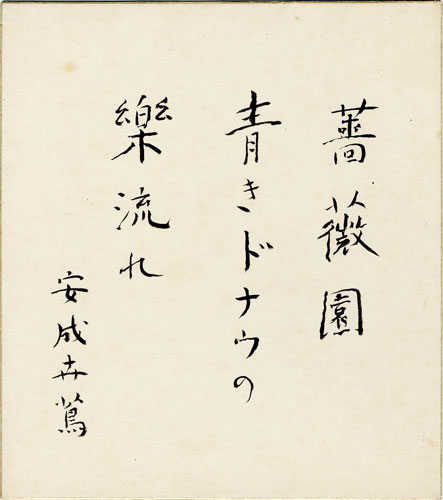 薔薇園
青きドナウの
樂流れ
安成